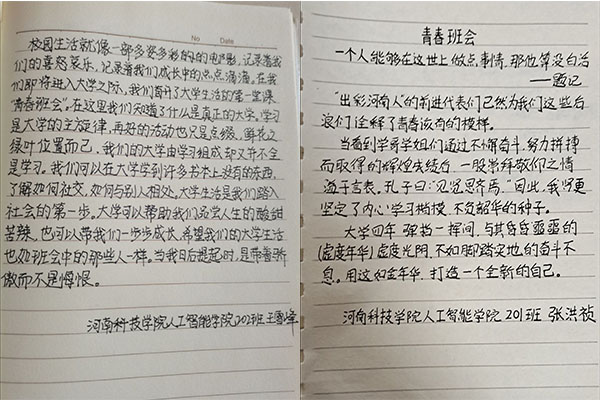 No Date
校园生活就像一部多姿多彩的电影,记录着我
们的喜怒哀乐,记录着我们成长中的点点滴滴。在我
们即将进入大学之际,我们看了大学生活的第一堂课
"青春班会"。在这里我们知道了什么是真正的大学。学习
是大学的主旋律,再好的活动也只是点缀,鲜花之
绿叶位置而已,我们的大学由学习组成却又并不全
是学习。我们可以在大学学到许多书本上没有的东西,
了解如何社交,如何与别人相处。大学生活是我们踏入
社会的第一步。大学可以帮助我们品尝人生的酸甜
苦辣,也可以带我们一步步成长,希望我们的大学生活
也如班会中的那些人一样。当我日后提起时,是带着骄
傲而不是悔恨。
河南科技学院人工智能学院202班王
青春班会
一个人能够在这世上做点事情,那他算没白活
——题记
"出彩河南人"的前进代表们已然为我们这些后
浪们诠释了青春该有的模样。
当看到学哥学姐们通过不懈奋斗、努力拼搏
而取得的辉煌成绩后,一股崇拜敬仰之情
溢于言表,孔子曰:"见贤思齐焉,"因此,我更
坚定了内心学习楷模,不负韶华的种子。
大学四年 弹指一挥间,与其昏昏噩噩的
(虚度年华)虚度光阴,不如脚踏实地的奋斗不
息。用这如金年华,打造一个全新的自己。
河南科技学院人工智能学院 201班 张洪祯